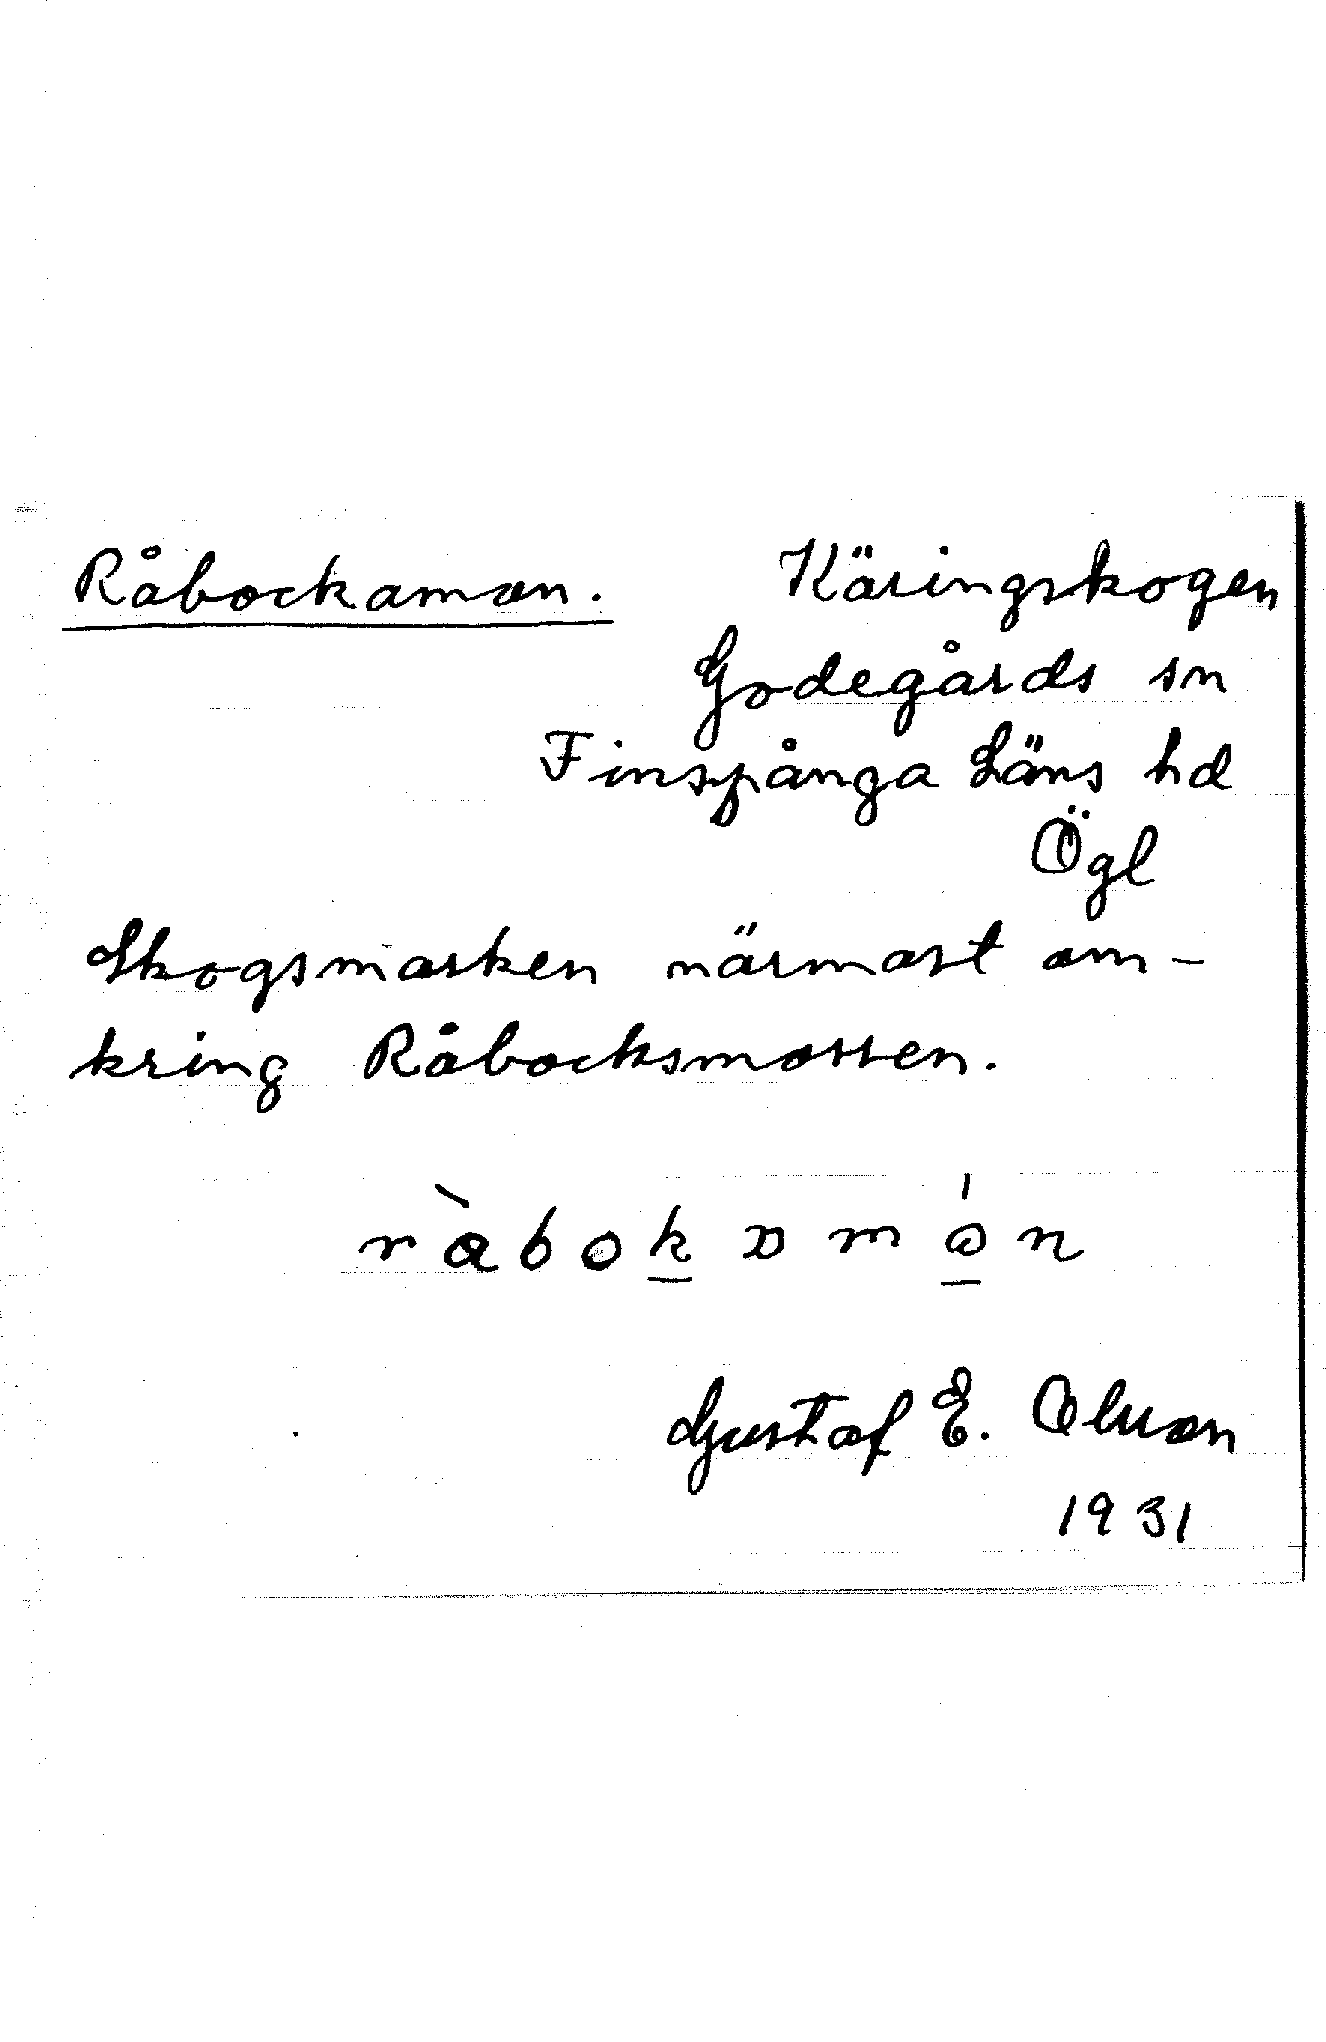 Råbockamon. Käringskogen
Godegårds sn
Finspånga Läns hd
Ögl
Skogsmarken närmast om-
kring Råbocksmossen.
ràbokɒmón
Gustaf E. Olsson
1931